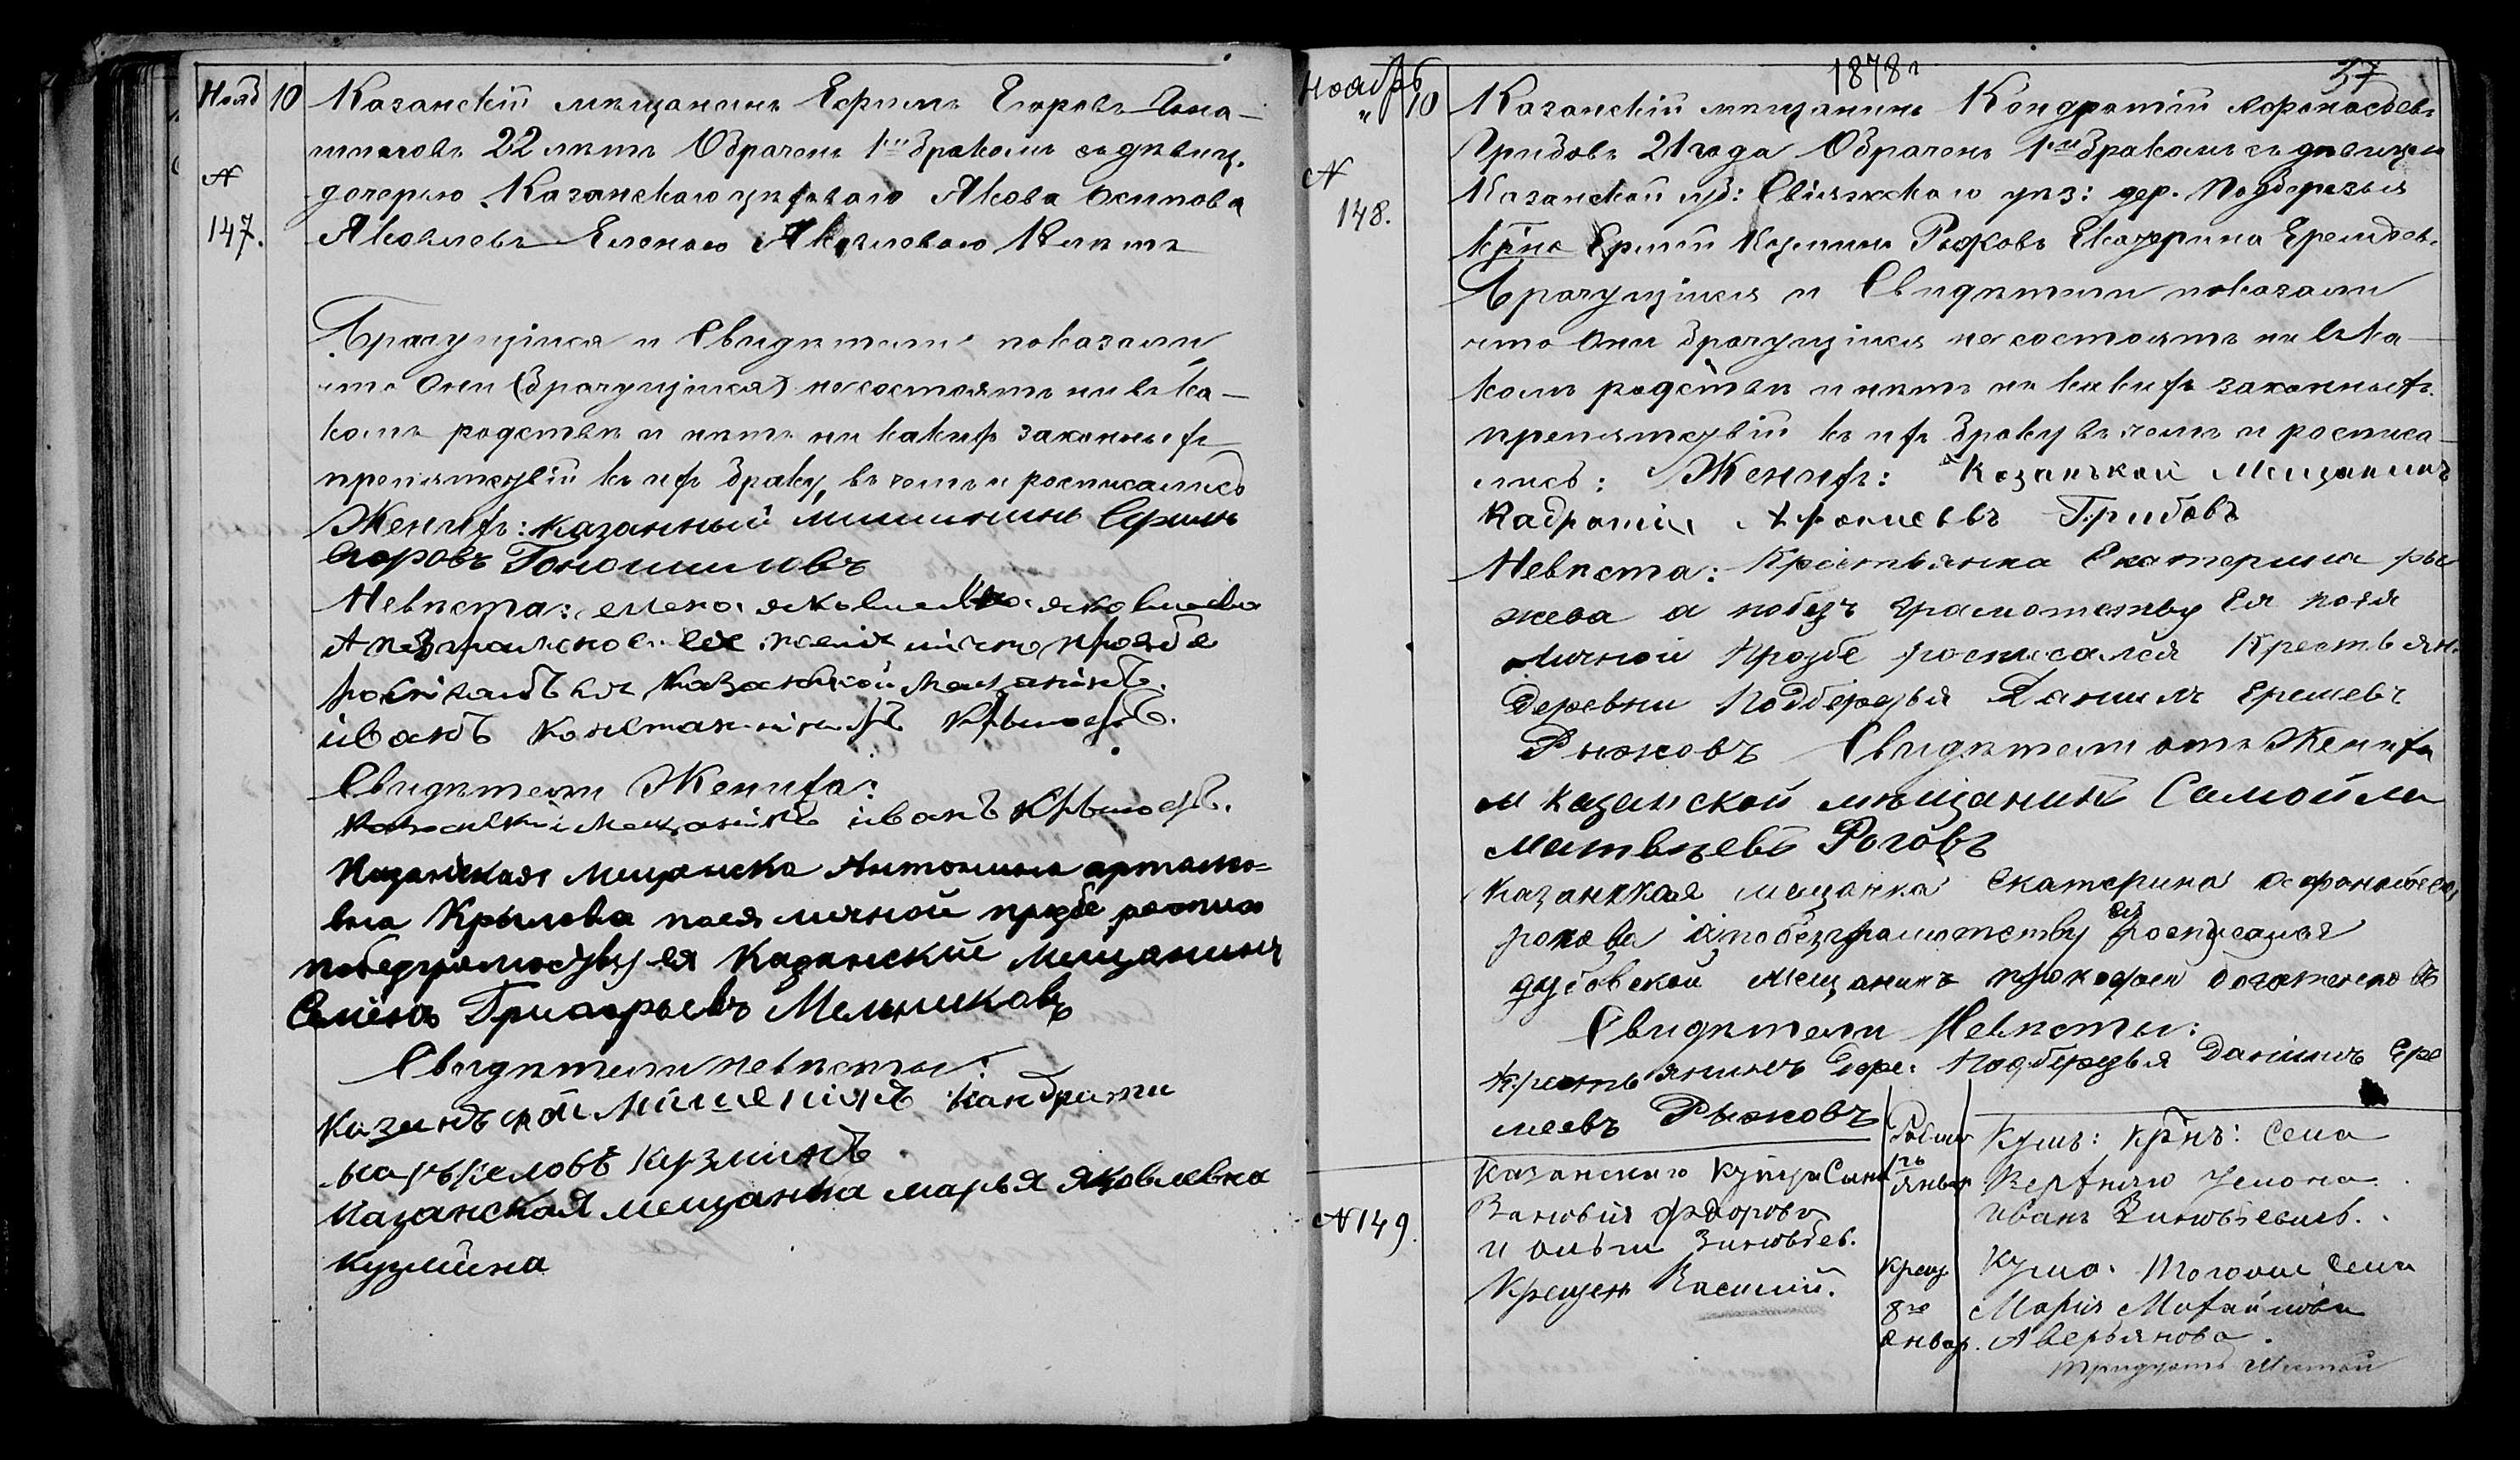 Нояб 10 Казанскій мѣщанинъ Ефримъ Егоровъ Гона-
шиловъ 22 лѣтъ Обрачен 1мъ бракомъ съ дѣвиц.
№ дочерью Казанскаго цѣховаго Якова Осипова
147. Яковлевъ Еленою Яковлевою 18 лѣтъ
Брачущіися и Свидѣтели показали
что Они (брачущіися) не состоятъ ни въ ка-
комъ родствѣ и нѣтъ ни какихъ законныхъ
препятствій къ ихъ браку, въ чемъ и росписались
Женихъ: казанный мишинин Ефримъ
Егоровъ Гоношиловъ
Невѣста: елена яковлева
росписалъся Казанской Мещанінъ.
іванъ константіновъ Крыловъ.
Свидѣтели Жениха:
Казанскій Мещанінъ іванъ Крыловъ.
Казанская Мещанска Антонина артамо-
вна Крылова поея личной прозбе роспис
побезграмоству ея Казанский Мещанинъ
Семёнъ Григорьевъ Мельниковъ
Свидѣтели невѣсты:
Казанъской Мишенінъ Кандрати
Кузминъ
Казанская мещанка марья яковлевна
кузмина
1878г 37
Ноябрь
" 10 Казанскій мѣщанинъ Кондратій Афонасьевъ
Грибовъ 21 года Обрачен 1мъ бракомъ съ дѣвицею
№ Казанской губ: Свіяжскаго уѣз: дер. Подберезья
148. Крна Ерміи Кузмина Рыжовъ Екатерина Еремѣев.
Брачущіися и Свидѣтели показали
что Они брачущіися не состоятъ ни въ ка-
комъ родствѣ и нѣтъ ни какихъ законныхъ
препятствій къ ихъ браку въ чемъ и росписа-
лись: Женихъ: Казанькай Мещанинъ
Кадратій Афонисьевъ Грибовъ
Невѣста: Крестьянка Екатерина ры
жова а побезъ грамотству Ея поея
личной Прозбе росписался Крестьян.
Деревни Подберезья Данилъ Еремевъ
Рыжовъ Свидѣтели отъ Жениха
казанской мѣщанинъ Самойла
матвѣевъ Роговъ
Казанская мещанка Екатерина
рогова апобезграмотству ея росписался
дубовской мещанинъ прокофеи
Свидѣтели Невѣсты:
Крестьянинъ Дере. Подберезья Данилъ Ере
меевъ Рыжовъ
№ 149. Казанскаго Купца Сынъ
Зиновія Федорова
и ольги Зиновьев.
Крещен Василий.
Родил
1го
Январ
Крещ
8го
Январ.
Кумъ: Крнъ: Села
Верхняго Услона
Иванъ Зиновьевичъ.
Кума. Тогоже Села
Марія Михайлова
Аверьянова.
тридцать Шестой